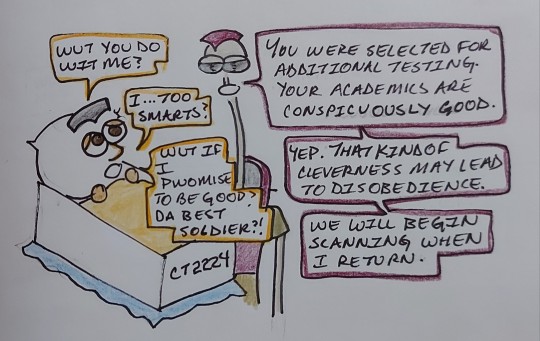 WUT YOU DO
WIT ME?
YOU WERE SELECTED FOR
ADDITIONAL TESTING.
YOUR ACADEMICS ARE
CONSPICUOUSLY GOOD.
I... TOO
SMARTS?
YEP. THAT KIND OF
CLEVERNESS MAY LEAD
TO DISOBEDIENCE.
WUT IF
I
PWOMISE
TO BE GOOD?
DA BEST
SOLDIER?!
WE WILL BEGIN
SCANNING WHEN
I RETURN.
CT2224